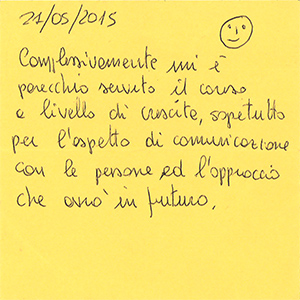 21/05/2015
Complessivamente mi è
parecchio servito il corso
a livello di crescita, sopratutto
per l'aspetto di comunicazione
con le persone ed l'approccio
che avrò in futuro.